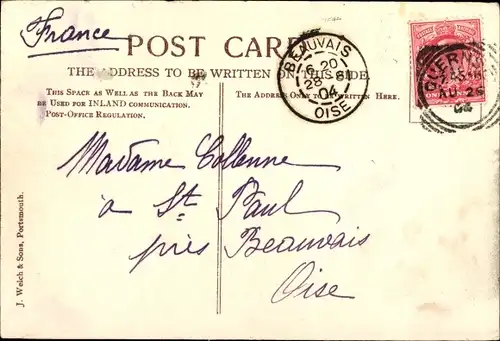 France
POST CARD
THE ADDRESS TO BE WRITTEN ON THIS SIDE.
THIS SPACE AS WELL AS THE BACK MAY
BE USED FOR INLAND COMMUNICATION.
POST-OFFICE REGULATION.
THE ADDRESS ONLY TO BE WRITTEN HERE.
BEAUVAIS
6 20
28 8
04
OISE
GUERN
AU 26
04
Madame Collenne
à St Paul
près Beauvais
Oise
J. Welch & Sons, Portsmouth.